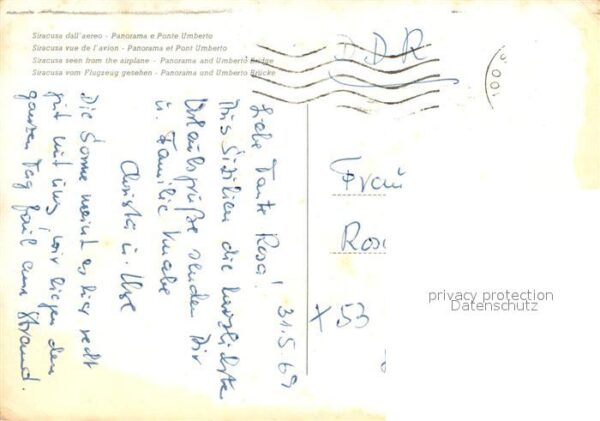 Siracusa dall'aereo - Panorama e Ponte Umberto
Siracusa vue de l'avion - Panorama et Pont Umberto
Siracusa seen from the airplane - Panorama and Umberto Bridge
Siracusa vom Flugzeug gesehen - Panorama und Umberto Brücke
D D R
31.5.69
Liebe Tante Rosa!
Aus Sizilien die herzlichsten
Urlaubsgrüße senden Dir
u. Familie
Christa u.
Die Sonne meint es hier recht
gut mit uns, wir liegen den
ganzen Tag faul am Strand.
Frau
Rosa
X 53
privacy protection
Datenschutz